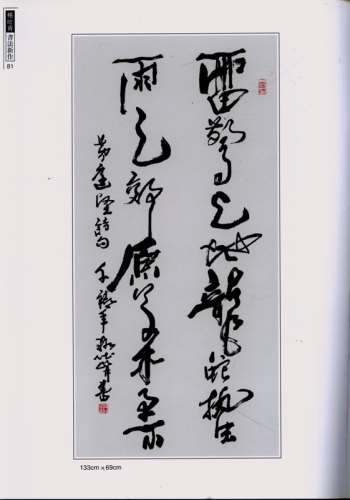 書法新作
81
雷驚天地龍蛇蟄
雨足郊原草木柔
黄庭堅詩句 千禧年 書
133cm×69cm